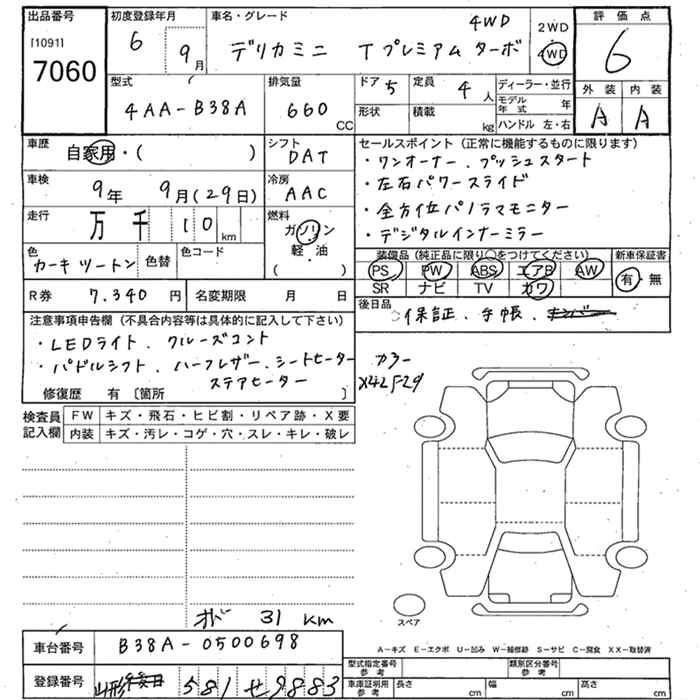 出品番号
[1091]
7060
初度登録年月
6 9月
車名・グレード
4WD
デリカミニ Tプレミアム ターボ
2WD
4WD
評価点
6
型式
4AA-B38A
排気量
660 CC
ドア 5
形状
定員 4人
積載 kg
ディーラー・並行
モデル年式 年
ハンドル 左・右
外装 内装
A A
車歴 自家用・( )
シフト
DAT
車検 9年 9月(29日)
冷房
AAC
走行 万 千 10 km
燃料
ガソリン
軽・油
( )
色
カーキツートン
色替
色コード
R券 7,340 円
名変期限 月 日
セールスポイント(正常に機能するものに限ります)
・ワンオーナー、プッシュスタート
・左右パワースライド
・全方位パノラマモニター
・デジタルインナーミラー
装備品(純正品に限り○をつけてください)
新車保証書
PS PW ABS エアB AW
有・無
SR ナビ TV カワ
後日品
保証、手帳、
注意事項申告欄(不具合内容等は具体的に記入して下さい)
・LEDライト、クルーズコント
・パドルシフト、ハーフレザー、シートヒーター
ステアヒーター
修復歴 有〔箇所 〕
カラー
X42F29
検査員記入欄
FW キズ・飛石・ヒビ割・リペア跡・X要
内装 キズ・汚レ・コゲ・穴・スレ・キレ・破レ
スペア
オド 31 km
A-キズ E-エクボ U-凹み W-補修跡 S-サビ C-腐食 XX-取替済
車台番号 B38A-0500698
登録番号 山形 581 せ 9883
型式指定番号 参考
類別区分番号 参考
車庫証明用 参考
長さ cm 幅 cm 高さ cm